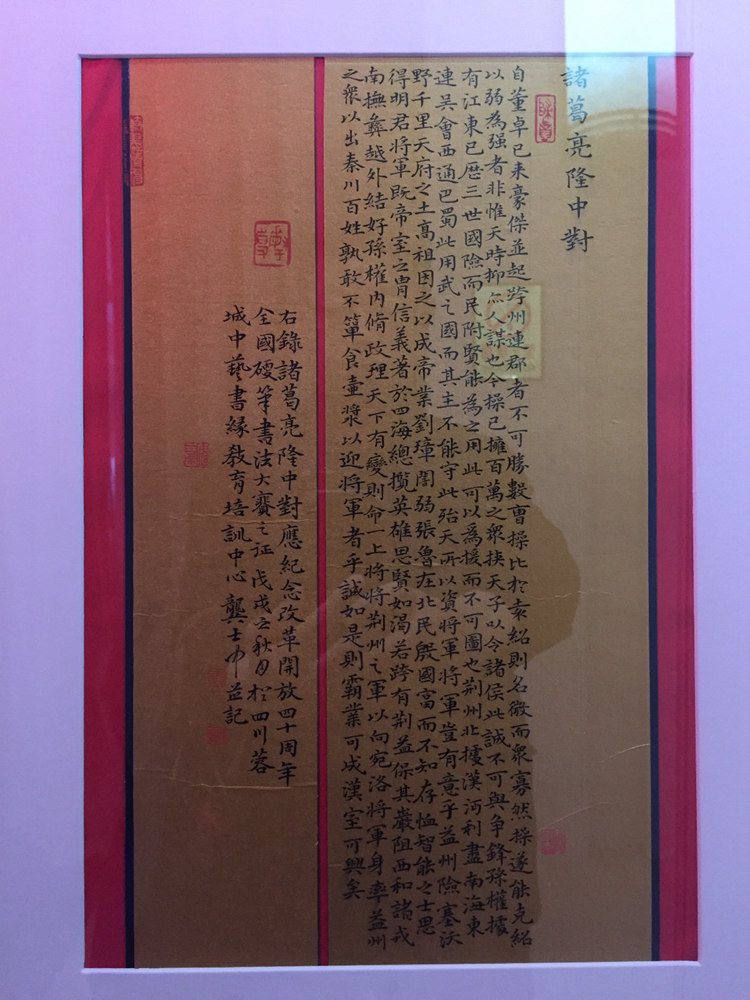 諸葛亮隆中對
自董卓已来豪傑並起跨州連郡者不可勝數曹操比於袁紹則名微而衆寡然操遂能克紹
以弱為强者非惟天時抑亦人謀也今操已擁百萬之衆挟天子以令諸侯此誠不可與争鋒孫權據
有江東已歷三世國險而民附賢能為之用此可以為援而不可圖也荆州北據漢沔利盡南海東
連吴會西通巴蜀此用武之國而其主不能守此殆天所以資将軍将軍豈有意乎益州險塞沃
野千里天府之土高祖因之以成帝業劉璋闇弱張魯在北民殷國富而不知存恤智能之士思
得明君将軍既帝室之胄信義著於四海總攬英雄思賢如渴若跨有荆益保其巖阻西和諸戎
南撫彝越外結好孫權内脩政理天下有變則命一上将将荆州之軍以向宛洛将軍身率益州
之衆以出秦川百姓孰敢不簞食壷漿以迎将軍者乎誠如是則霸業可成漢室可興矣
右錄諸葛亮隆中對應紀念改革開放四十周年
全國硬筆書法大賽之征戊戌之秋月於四川蓉
城中藝書緣教育培訓中心龔士中益記